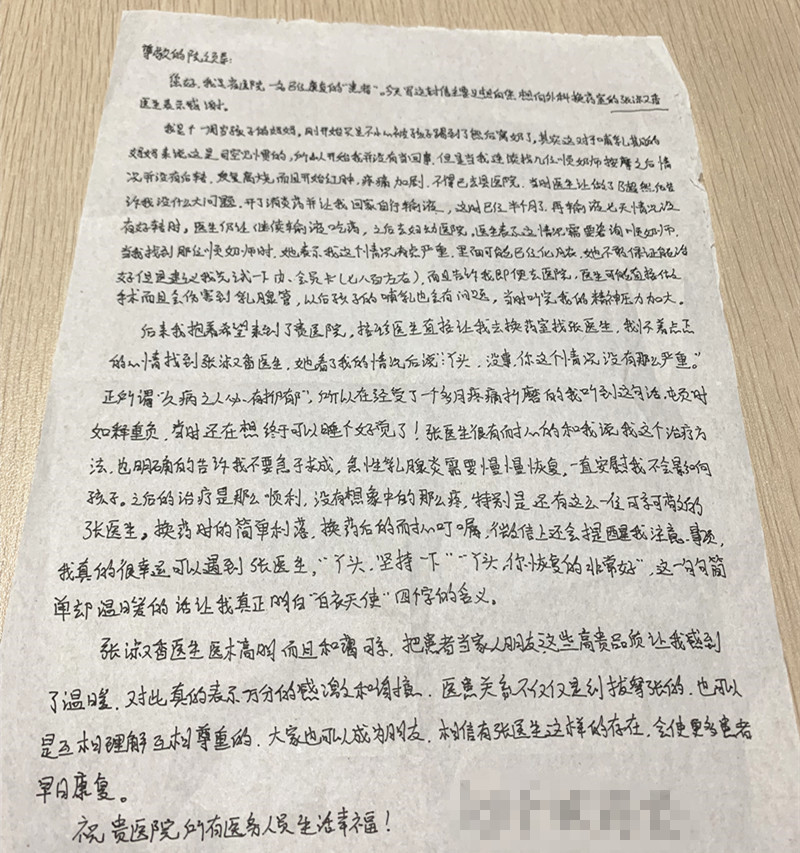 尊敬的院领导:
您好,我是贵医院一名已经康复的"患者"。今天写这封信主要是想向您 想向外科换药室的张淑香
医生表示感谢。
我是个一周岁孩子的妈妈,刚开始只是不小心被孩子踢到了然后窝奶了,其实这对于哺乳期的
妈妈来说这是司空见惯的,所以一开始我并没有当回事,但是当我连续找几位顺奶师按摩之后情
况并没有好转,反复高烧而且开始红肿,疼痛加剧,不得已去县医院,当时医生让做了B超然后告
诉我没什么大问题,开了消炎药并让我回家自行输液,这时已经半个月了,再输液七天情况没
有好转时,医生仍让继续输液吃药,之后去妇幼医院,医生表示这情况需要咨询顺奶师,
当我找到那位顺奶师时,她表示我这个情况病态严重,里面可能已经化脓,她不敢保证能治
好但是建议我先试一下 办会员卡(七八百左右),而且告诉我即便去医院,医生可能直接做
手术而且会伤害到乳腺管,以后孩子的哺乳也会有问题,当时听完我的精神压力加大。
后来我抱着希望来到了贵医院,接诊医生直接让我去换药室找张医生,我怀着忐忑
的心情找到张淑香医生,她看了我的情况后说:"丫头,没事,你这个情况没有那么严重。"
正所谓"久病之人必有抑郁",所以在经受了一个多月疼痛折磨的我听到这句话,顿时
如释重负,当时还在想终于可以睡个好觉了!张医生很有耐心的和我说我这个治疗方
法,也明确的告诉我不要急于求成,急性乳腺炎需要慢慢恢复,一直安慰我不会影响
孩子。之后的治疗是那么顺利,没有想象中的那么疼,特别是还有这么一位可亲可敬的
张医生。换药时的简单利落,换药后的耐心叮嘱,微信上还会提醒我注意事项,
我真的很幸运可以遇到张医生,"丫头,坚持一下""丫头,你恢复的非常好",这一句句简
单却温暖的话让我真正明白"白衣天使"四个字的含义。
张淑香医生医术高明而且和蔼可亲,把患者当家人朋友,这些高贵品质让我感到
了温暖,对此真的表示万分的感激和崇敬,医患关系不仅仅是剑拔弩张的,也可以
是互相理解互相尊重的,大家也可以成为朋友,相信有张医生这样的存在,会使更多患者
早日康复。
祝贵医院所有医务人员生活幸福!